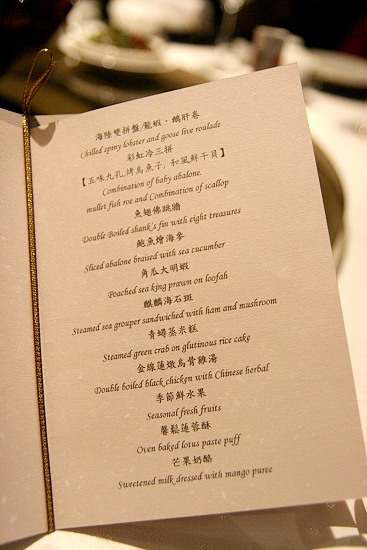 海陸雙拼盤/龍蝦．鵝肝卷
Chilled spiny lobster and goose live roulade
彩虹冷三拼
【五味九孔,烤烏魚子, 和風鮮干貝】
Combination of baby abalone.
mullet fish roe and Combination of scallop
魚翅佛跳牆
Double Boiled shank's fin with eight treasures
鮑魚燴海參
Sliced abalone braised with sea cucumber
角瓜大明蝦
Poached sea king prawn on loofah
麒麟海石斑
Steamed sea grouper sandwiched with ham and mushroom
青蟳蒸米糕
Steamed green crab on glutinous rice cake
金線蓮燉烏骨雞湯
Double boiled black chicken with Chinese herbal
季節鮮水果
Seasonal fresh fruits
馨鬆蓮蓉酥
Oven baked lotus paste puff
芒果奶酪
Sweetened milk dressed with mango puree